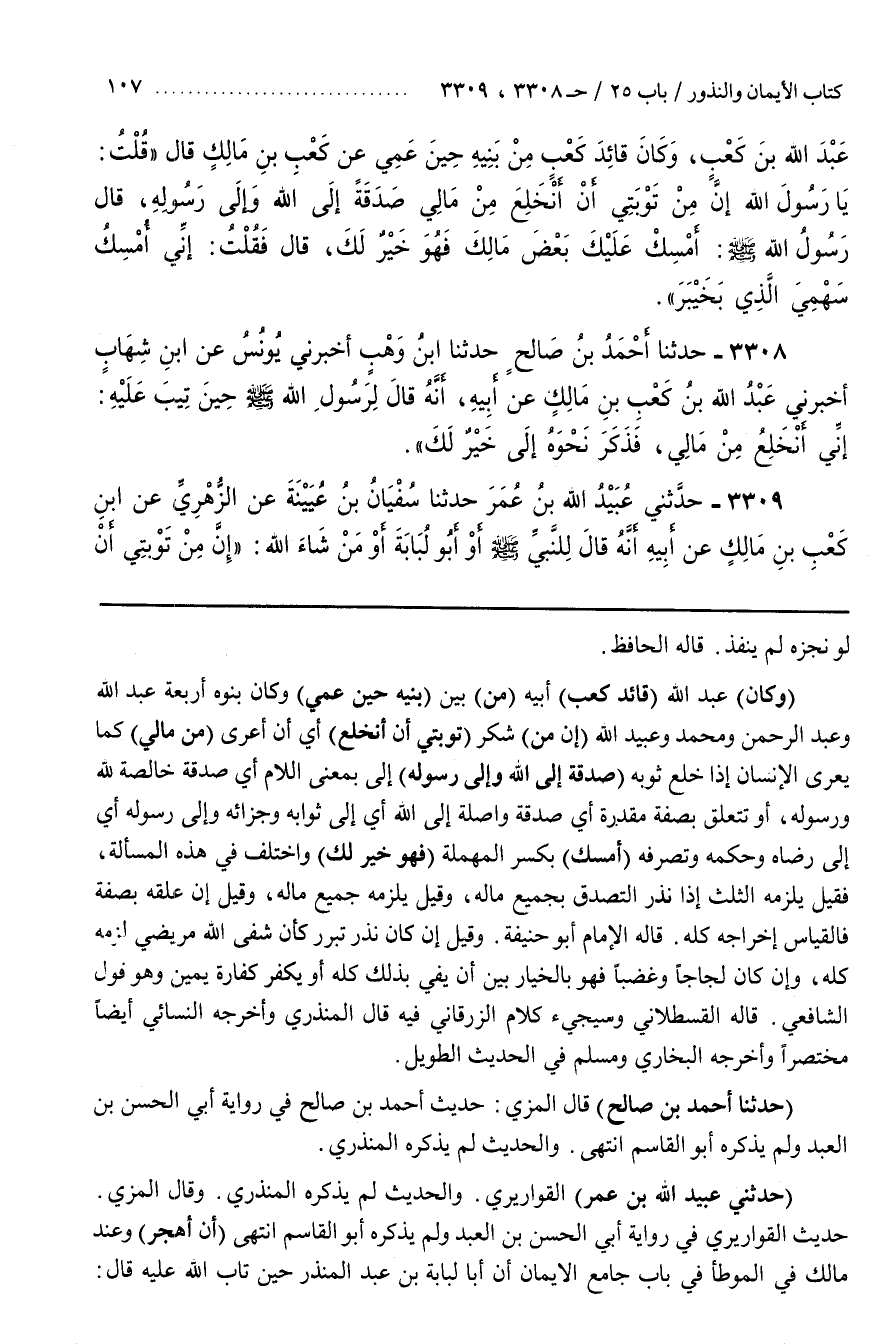 كتاب الأيمان والنذور / باب ٢٥ / حـ ٣٣٠٨ ، ٣٣٠٩ .............................. ١٠٧
عَبْدَ الله بنَ كَعْبٍ، وَكَانَ قائِدَ كَعْبٍ مِنْ بَنِيهِ حِينَ عَمِي عن كَعْبِ بنِ مَالِكٍ قال «قُلْتُ:
يَا رَسُولَ الله إنَّ مِنْ تَوْبَتِي أنْ أَنْخَلِعَ مِنْ مَالِي صَدَقَةً إلَى الله وَإلَى رَسُولِهِ، قال
رَسُولُ الله ﷺ: أَمْسِكْ عَلَيْكَ بَعْضَ مَالِكَ فَهُوَ خَيْرٌ لَكَ، قال فَقُلْتُ: إنِّي أُمْسِكُ
سَهْمِيَ الَّذِي بَخَيْبَرَ».
٣٣٠٨ ـ حدثنا أَحْمَدُ بنُ صَالحٍ حدثنا ابنُ وَهْبٍ أخبرني يُونُسُ عن ابنِ شِهَابٍ
أخبرني عَبْدُ الله بنُ كَعْبِ بنِ مَالِكٍ عن أَبِيهِ، أَنَّهُ قالَ لِرَسُولِ الله ﷺ حِينَ تِيبَ عَلَيْهِ:
إنِّي أَنْخَلِعُ مِنْ مَالِي، فَذَكَرَ نَحْوَهُ إلَى خَيْرٌ لَكَ».
٣٣٠٩ ـ حدَّثني عُبَيْدُ الله بنُ عُمَرَ حدثنا سُفْيَانُ بنُ عُيَيْنَةَ عن الزُّهْرِيِّ عن ابنِ
كَعْبِ بنِ مَالِكٍ عن أَبِيهِ أَنَّهُ قالَ لِلنَّبيِّ ﷺ أَوْ أَبُو لُبَابَةَ أَوْ مَنْ شَاءَ الله: «إنَّ مِنْ تَوْبتِي أَنْ
لو نجزه لم ينفذ. قاله الحافظ.
(وكان) عبد الله (قائد كعب) أبيه (من) بين (بنيه حين عمي) وكان بنوه أربعة عبد الله
وعبد الرحمن ومحمد وعبيد الله (إن من) شكر (توبتي أن أنخلع) أي أن أعرى (من مالي) كما
يعرى الإنسان إذا خلع ثوبه (صدقة إلى الله وإلى رسوله) إلى بمعنى اللام أي صدقة خالصة لله
ورسوله، أو تتعلق بصفة مقدرة أي صدقة واصلة إلى الله أي إلى ثوابه وجزائه وإلى رسوله أي
إلى رضاه وحكمه وتصرفه (أمسك) بكسر المهملة (فهو خير لك) واختلف في هذه المسألة،
فقيل يلزمه الثلث إذا نذر التصدق بجميع ماله، وقيل يلزمه جميع ماله، وقيل إن علقه بصفة
فالقياس إخراجه كله. قاله الإمام أبو حنيفة. وقيل إن كان نذر تبرر كأن شفى الله مريضي لزمه
كله، وإن كان لجاجاً وغضباً فهو بالخيار بين أن يفي بذلك كله أو يكفر كفارة يمين وهو قول
الشافعي. قاله القسطلاني وسيجيء كلام الزرقاني فيه قال المنذري وأخرجه النسائي أيضاً
مختصراً وأخرجه البخاري ومسلم في الحديث الطويل.
(حدثنا أحمد بن صالح) قال المزي: حديث أحمد بن صالح في رواية أبي الحسن بن
العبد ولم يذكره أبو القاسم انتهى. والحديث لم يذكره المنذري.
(حدثني عبيد الله بن عمر) القواريري. والحديث لم يذكره المنذري. وقال المزي.
حديث القواريري في رواية أبي الحسن بن العبد ولم يذكره أبو القاسم انتهى (أن أهجر) وعند
مالك في الموطأ في باب جامع الايمان أن أبا لبابة بن عبد المنذر حين تاب الله عليه قال: